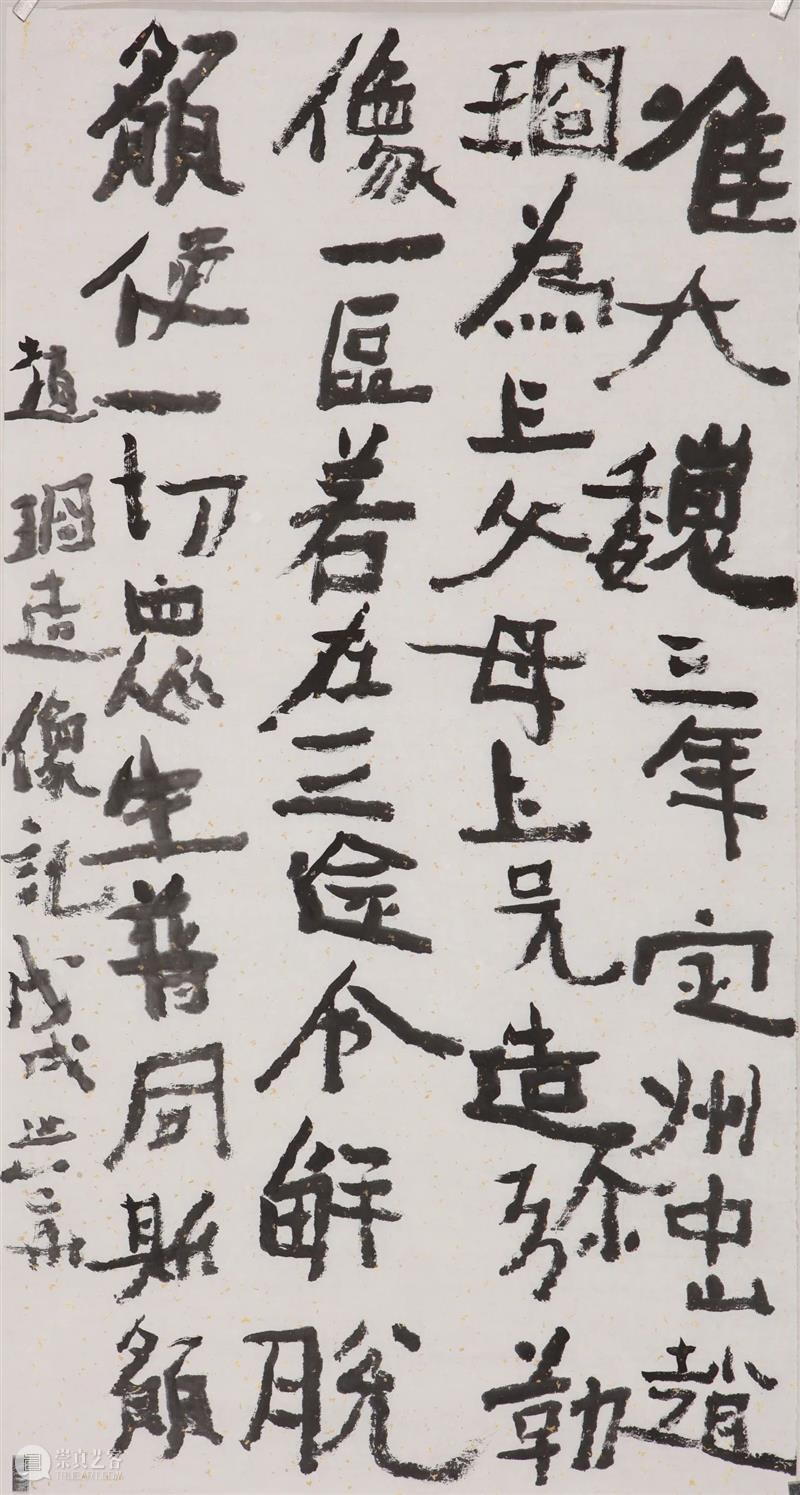 准大魏三年定州中山趙
琱為上父母上兄造弥勒
像一區若在三途令解脫
願使一切眾生普同斯願
趙琱造像記戊戌
崇真艺客
TRUEART.COM